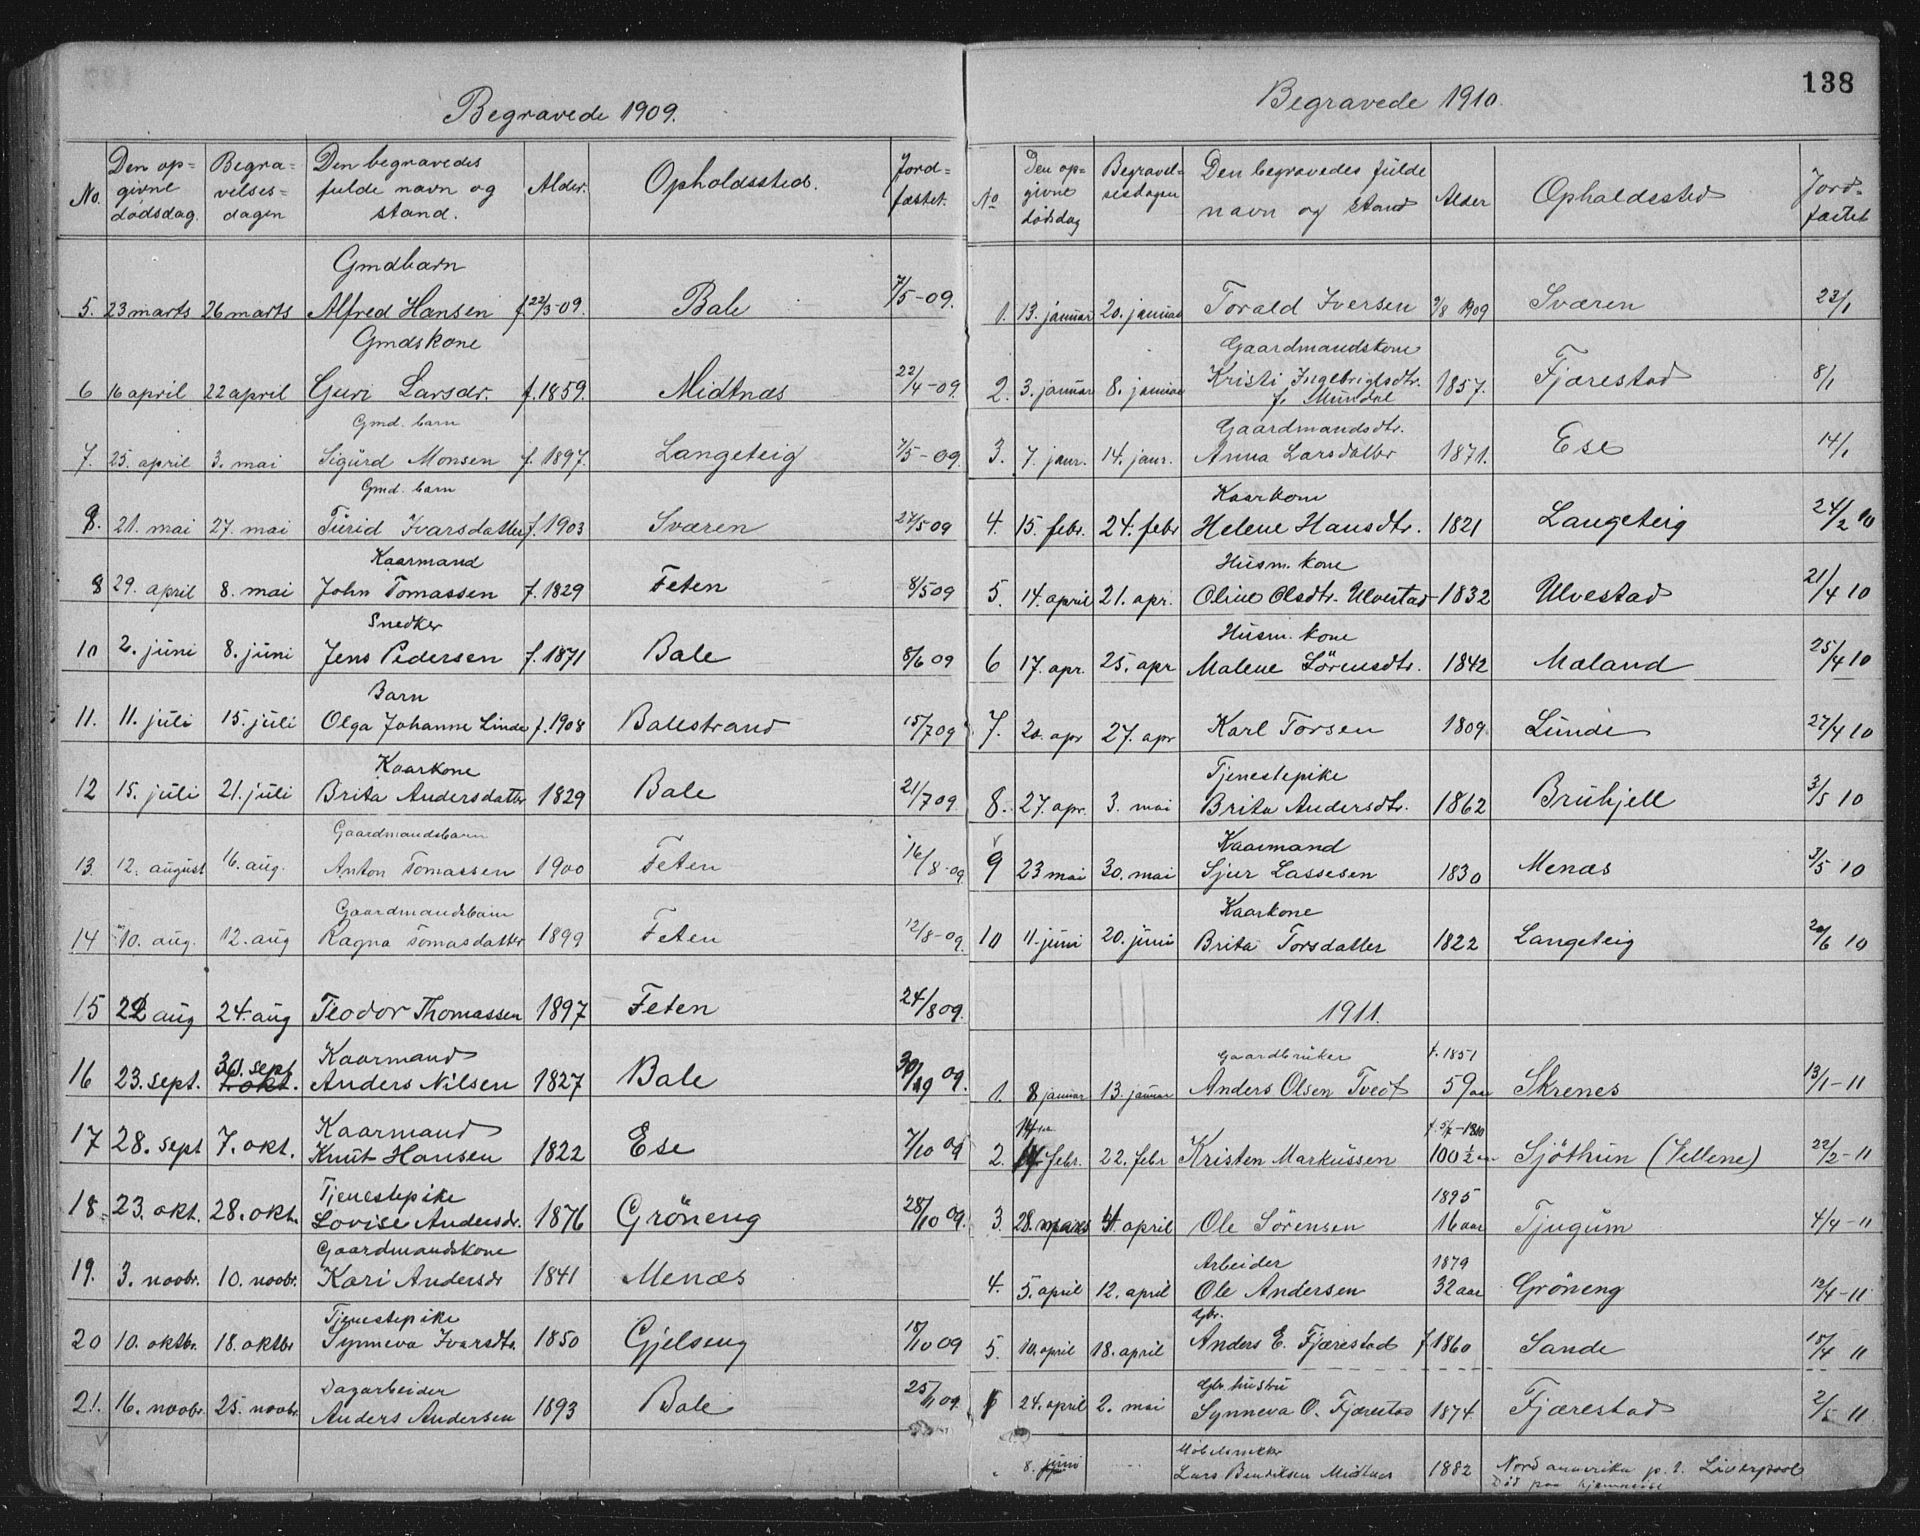 Begravede 1909.
No. | Den opgivne dødsdag. | Begravelsesdagen | Den begravedes fulde navn og stand. | Alder. | Opholdssted. | Jordfæstet.
Gmdbarn
5. 23 marts 26 marts Alfred Hansen f. 22/3-09. Bale 7/5-09.
Gmdskone
6 16 april 22 april Guri Larsdr. f. 1859. Midtnæs 22/4-09.
Gmd. barn
7. 25. april 3. mai Sigurd Monsen f. 1897. Langeteig 7/5-09.
Gmd. barn
9. 21. mai 27. mai Turid Ivarsdatter f. 1903 Sværen 27/5 09
Kaarmand
8 29. april 8. mai John Tomassen f. 1829 Feten 8/5 09
Snedker
10 2. juni 8. juni Jens Pedersen f. 1871 Bale 8/6 09
Barn
11. 11. juli 15. juli Olga Johanne Linde f. 1908 Balestrand 15/7 09
Kaarkone
12 15. juli 21. juli Brita Andersdatter 1829 Bale 21/7 09.
Gaardmandsbarn
13. 12. august 16. aug. Anton Tomassen 1900 Feten 16/8-09.
Gaardmandsbarn
14 10. aug. 12. aug Ragna Tomasdatter 1899 Feten 12/8-09.
15 22 aug 24. aug Teodor Thomassen 1897 Feten 24/8 09.
30. sept Kaarmand
16 23. sept. 1. okt. Anders Nilsen 1827 Bale 30/9 09.
Kaarmand
17 28. sept 7. okt. Knut Hansen 1822 Ese 7/10 09
Tjenestepike
18. 23. okt. 28. okt. Lovise Andersdr. 1876 Gröneng 28/10 09.
Gaardmandskone
19. 3. novbr. 10. novbr. Kari Andersdr 1841 Menæs
Tjenestepike
20 10. oktbr. 18. oktbr Synneva Ivarsdtr. 1850 Gjelseng 18/10 09
Dagarbeider
21. 16. novbr. 25. novbr. Anders Andersen 1893 Bale 25/11 09.
138
Begravede 1910.
No | Den opgivne dødsdag | Begravelsesdagen | Den begravedes fulde navn og stand | Alder | Opholdssted | Jordfæstet
1. 13. januar 20. januar Torald Iversen 9/8 1909 Sværen 23/1
Gaardmandskone
2. 3. januar 8. januar Kristi Ingebrigtsdtr. 1857. Fjærestad 8/1
f. Mundal
Gaardmandsdtr.
3. 7. janr. 14. janr. Anna Larsdatter 1871. Ese 14/1
Kaarkone
4. 15. febr. 24. febr Helene Hansdtr. 1821 Langeteig 24/2 10
Husm. kone
5. 14. april 21. apr. Oline Olsdtr. Ulvestad 1832 Ulvestad 21/4 10
Husm. kone
6 17. apr. 25. apr Malene Sörensdtr. 1842 Maland 25/4 10
7. 20. apr 27. apr Karl Torsen 1809. Lunde 27/4 10
Tjenestepike
8. 27. apr. 3. mai Brita Andersdtr. 1862 Bruhjell 3/5 10
Kaarmand
9 23 mai 30. mai Sjur Lassesen 1830 Menæs 3/5 10
Kaarkone
10 11. juni 20. juni Brita Torsdatter 1822 Langeteig 20/6 10
1911.
Gaardbruker f. 1851
1. 8 januar 13. januar Anders Olsen Tvedt 59 aar Skrenes 13/1-11
14
2. febr. 22. febr Kristen Markussen 100 1/2 Sjöthun (Vellene) 22/2-11
1895
3. 28. mars 4 april Ole Sörensen 16 aar Tjugum 4/4-11
Arbeider 1879
4. 5. april 12. april Ole Andersen 32 aar Gröneng 12/4-11
Gbr.
5. 10. april 18. april Anders E. Fjærestad f 1860 Sande 18/4 11
Gbr. hustru
6 24. april 2. mai Synneva O. Fjærestad 1874 Fjærestad 2/5 11
Möbelsnekker
8. juni Lars Bendiksen Midtnæs 1882 Nordamerika p. t. Liverpool
Död paa hjemreise